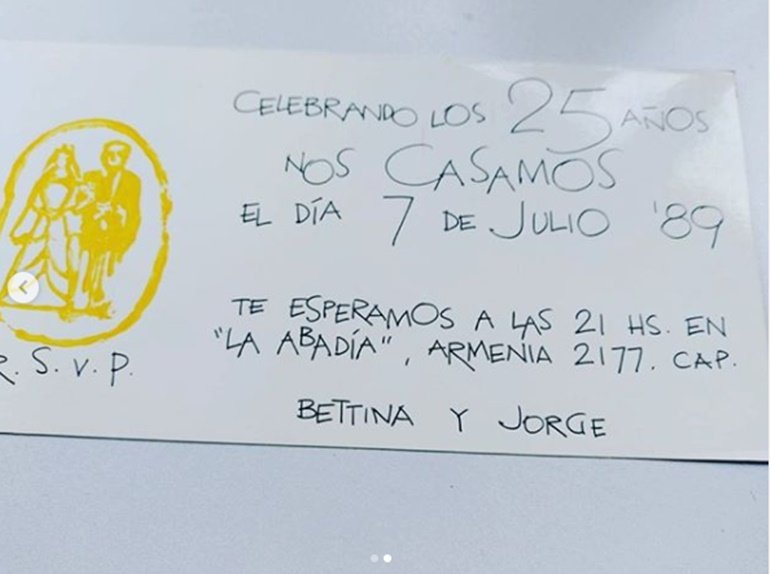 CELEBRANDO LOS 25 AÑOS
NOS CASAMOS
EL DÍA 7 DE JULIO '89
TE ESPERAMOS A LAS 21 HS. EN
"LA ABADÍA", ARMENIA 2177. CAP.
BETTINA Y JORGE
R. S. V. P.